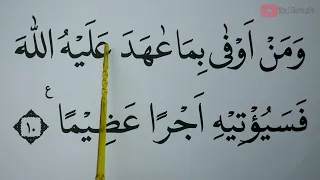 وَمَنْ اَوْفٰى بِمَا عٰهَدَ عَلَيْهُ اللّٰهَ
فَسَيُؤْتِيْهِ اَجْرًا عَظِيْمًا ࣖ ۝١٠